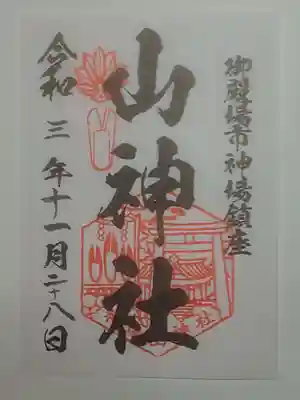 御殿場市神場鎮座
山神社
令和三年十一月二十八日